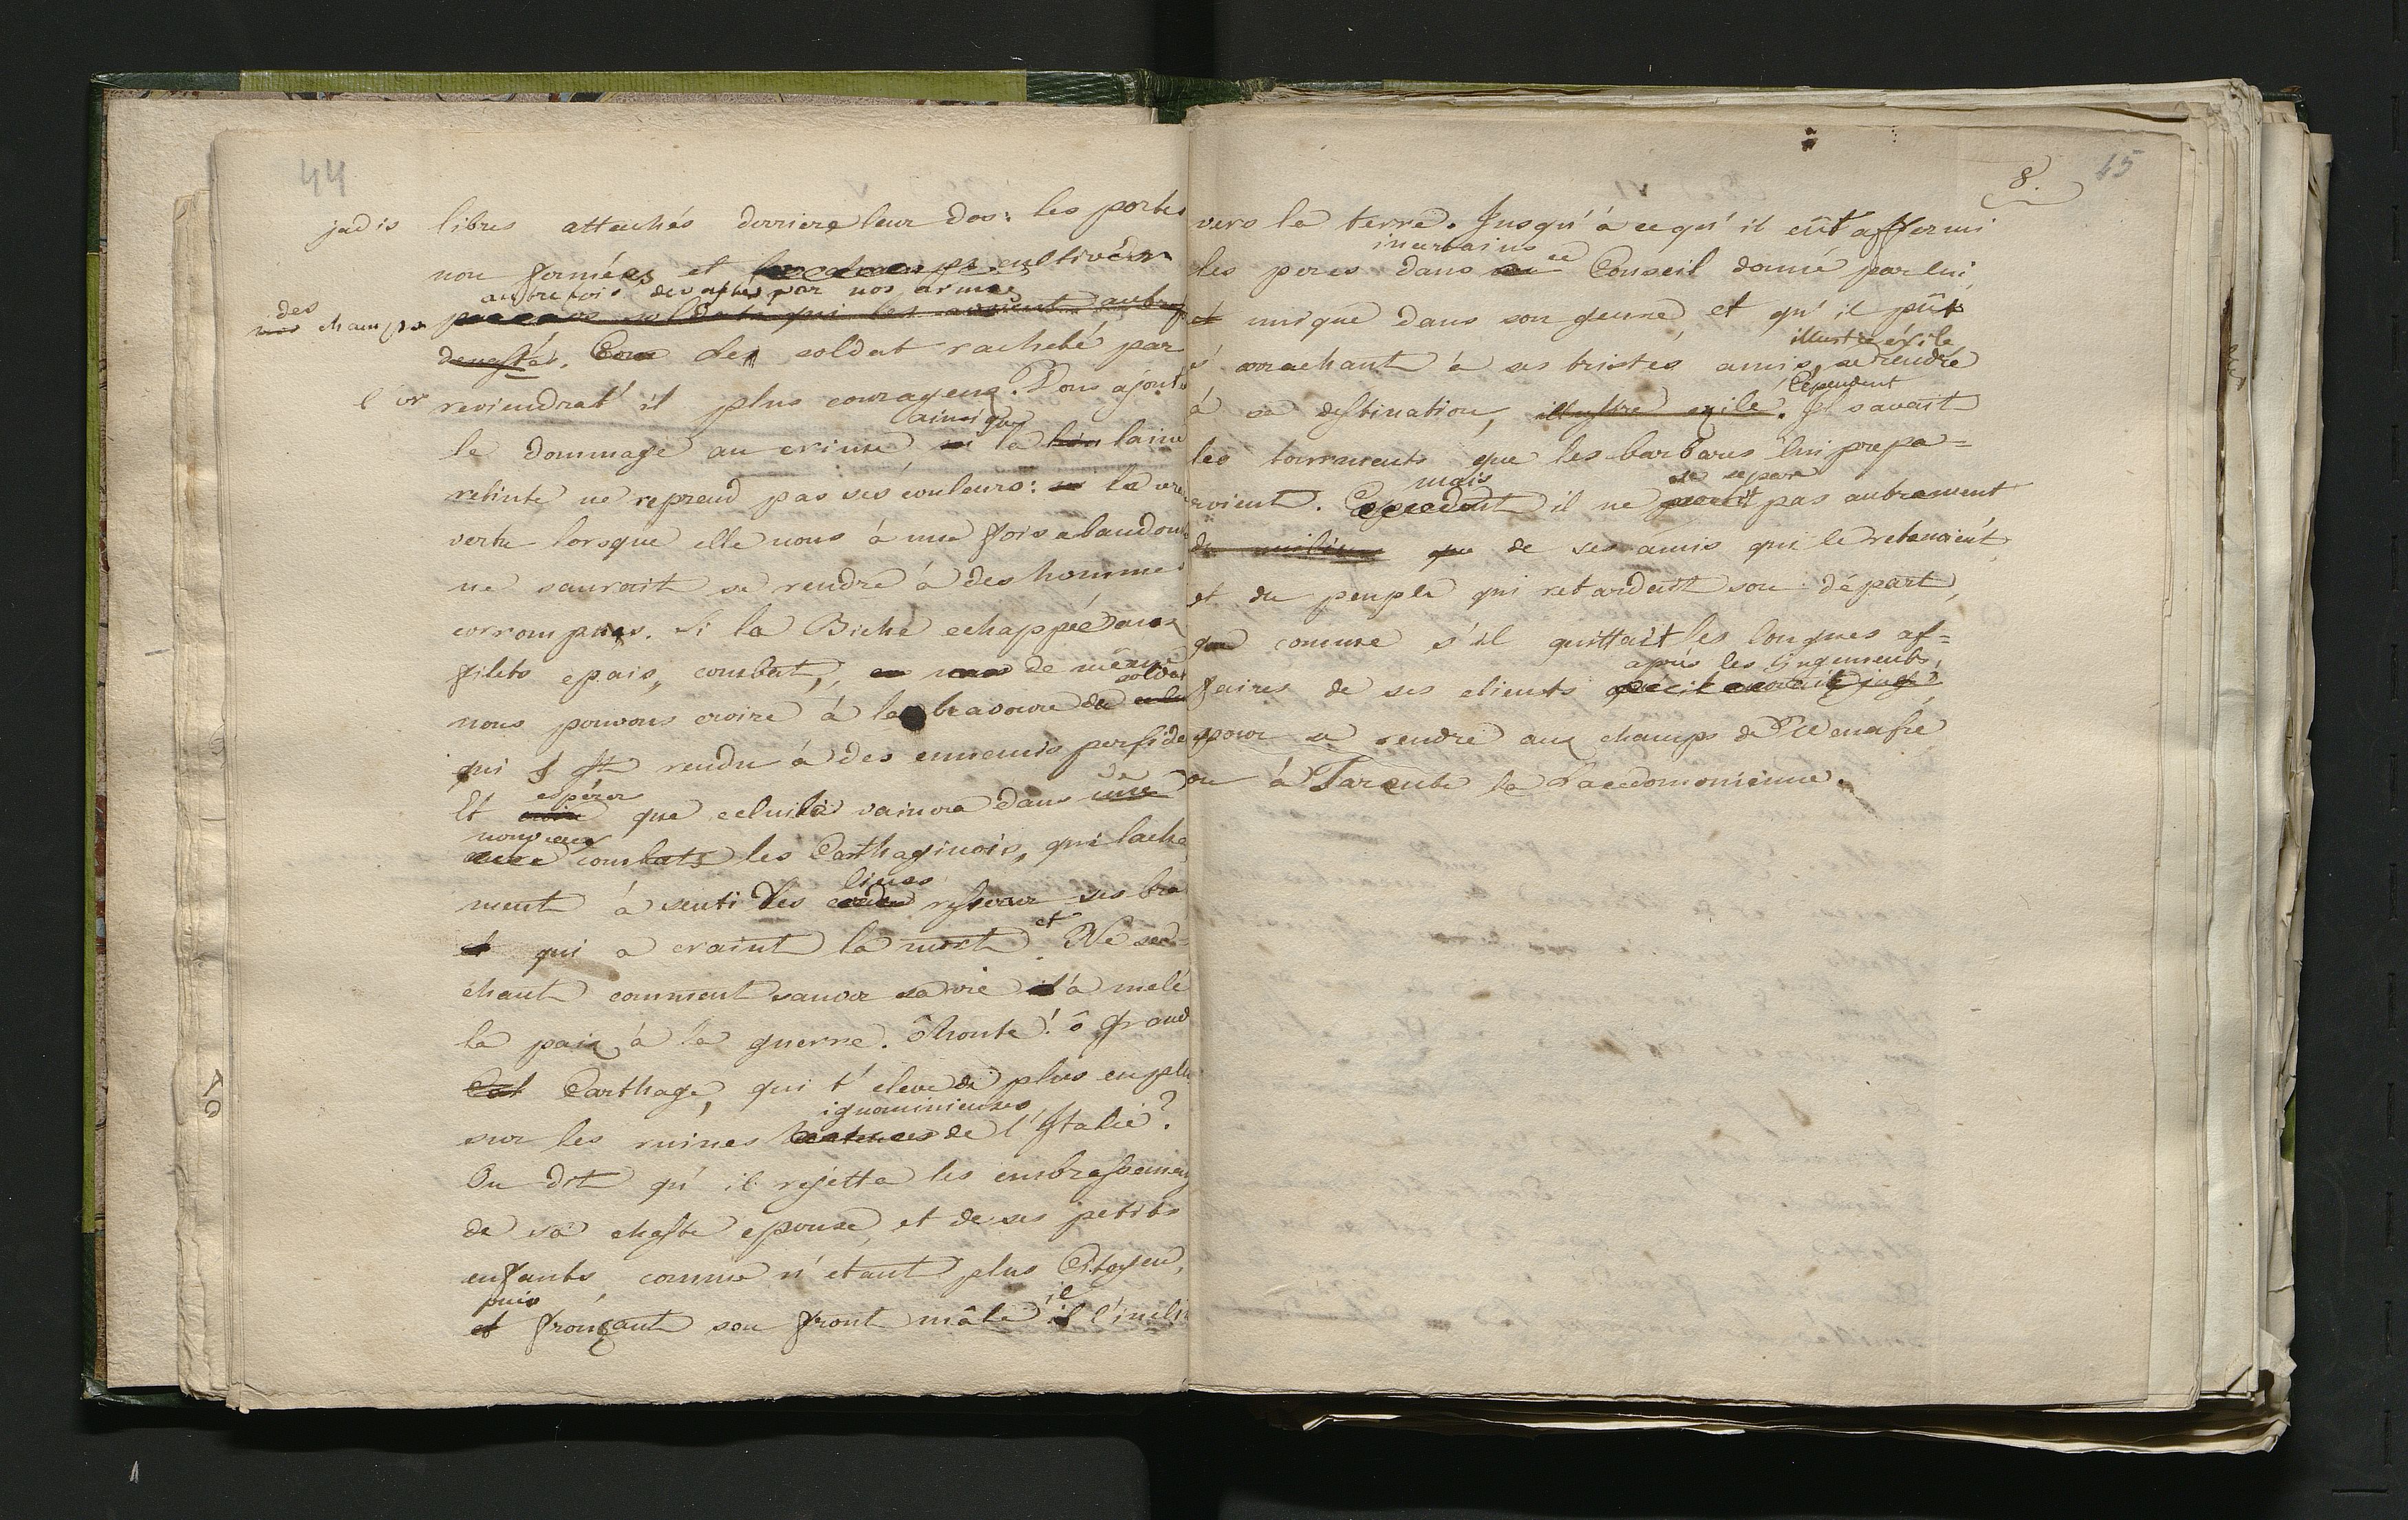 44
jadis libres attachés derriere leur dos: les portes
non fermées et les champs cultivés
autrefois devastés par nos armes
des
nos champs par nos soldats qui les avoient autref
devastés. Le soldat racheté par
l'or reviendrat' il plus courageux? Vous ajoute
ainsi que
le dommage au crime, la laine
reteinte ne reprend pas ses couleurs: la vraie
vertu lorsque elle nous à une fois abandonné
ne saurait se rendre à des hommes
corrompues. Si la Biche echappée aux
filets epais, combat, de même
soldat
nous pouvons croire à la bravoure du
qui s'est rendu à des ennemis perfides
espérer
Et que celui là vaincra dans une
nouveaux
combats les Carthaginois, qui lache
liens
ment à senti les cordes resserrer ses bras
et
et qui a craint la mort. Ne sed=
chant comment sauver sa vie il à melé
la paix à la guerre. ô honte! ô grand
Cart Carthage, qui t'eleve de plus en plus
ignominieuses
sur les ruines honteuses de l'Italie?
On dit qu'il rejetta les embrassemens
de sa chaste epouse, et de ses petits
enfants, comme n'etant plus Citoyen,
puis
il
et fronçant son front mâle il l'inclin
8.
45
vers la terre. Jusqu'à ce qu'il eût affermi
incertains
ce
les peres dans Conseil donné par lui,
et unique dans son genre, et qu'il pût
illustre éxile
s'arrachant à ses tristes amis, se rendre
Cependant
à sa destination, illustre exilé. Il savait
les tourments que les barbares lui prepa=
mais
se separe
roient. Cependant il ne partit pas autrement
du milieu que de ses amis qui le retenoient,
et du peuple qui retardait son départ,
que comme s'il quittait les longues af=
après les jugements,
faires de ses clients
pour se rendre aux champs de Venafre
ou à Tarente la Lacedomonienne.